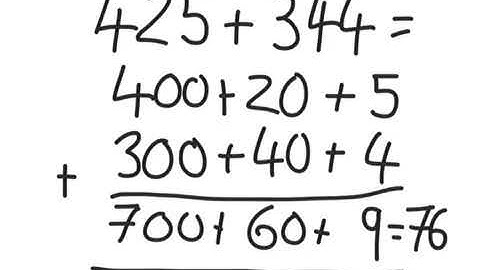 425 + 344 =
400 + 20 + 5
+ 300 + 40 + 4
700 + 60 + 9 = 76